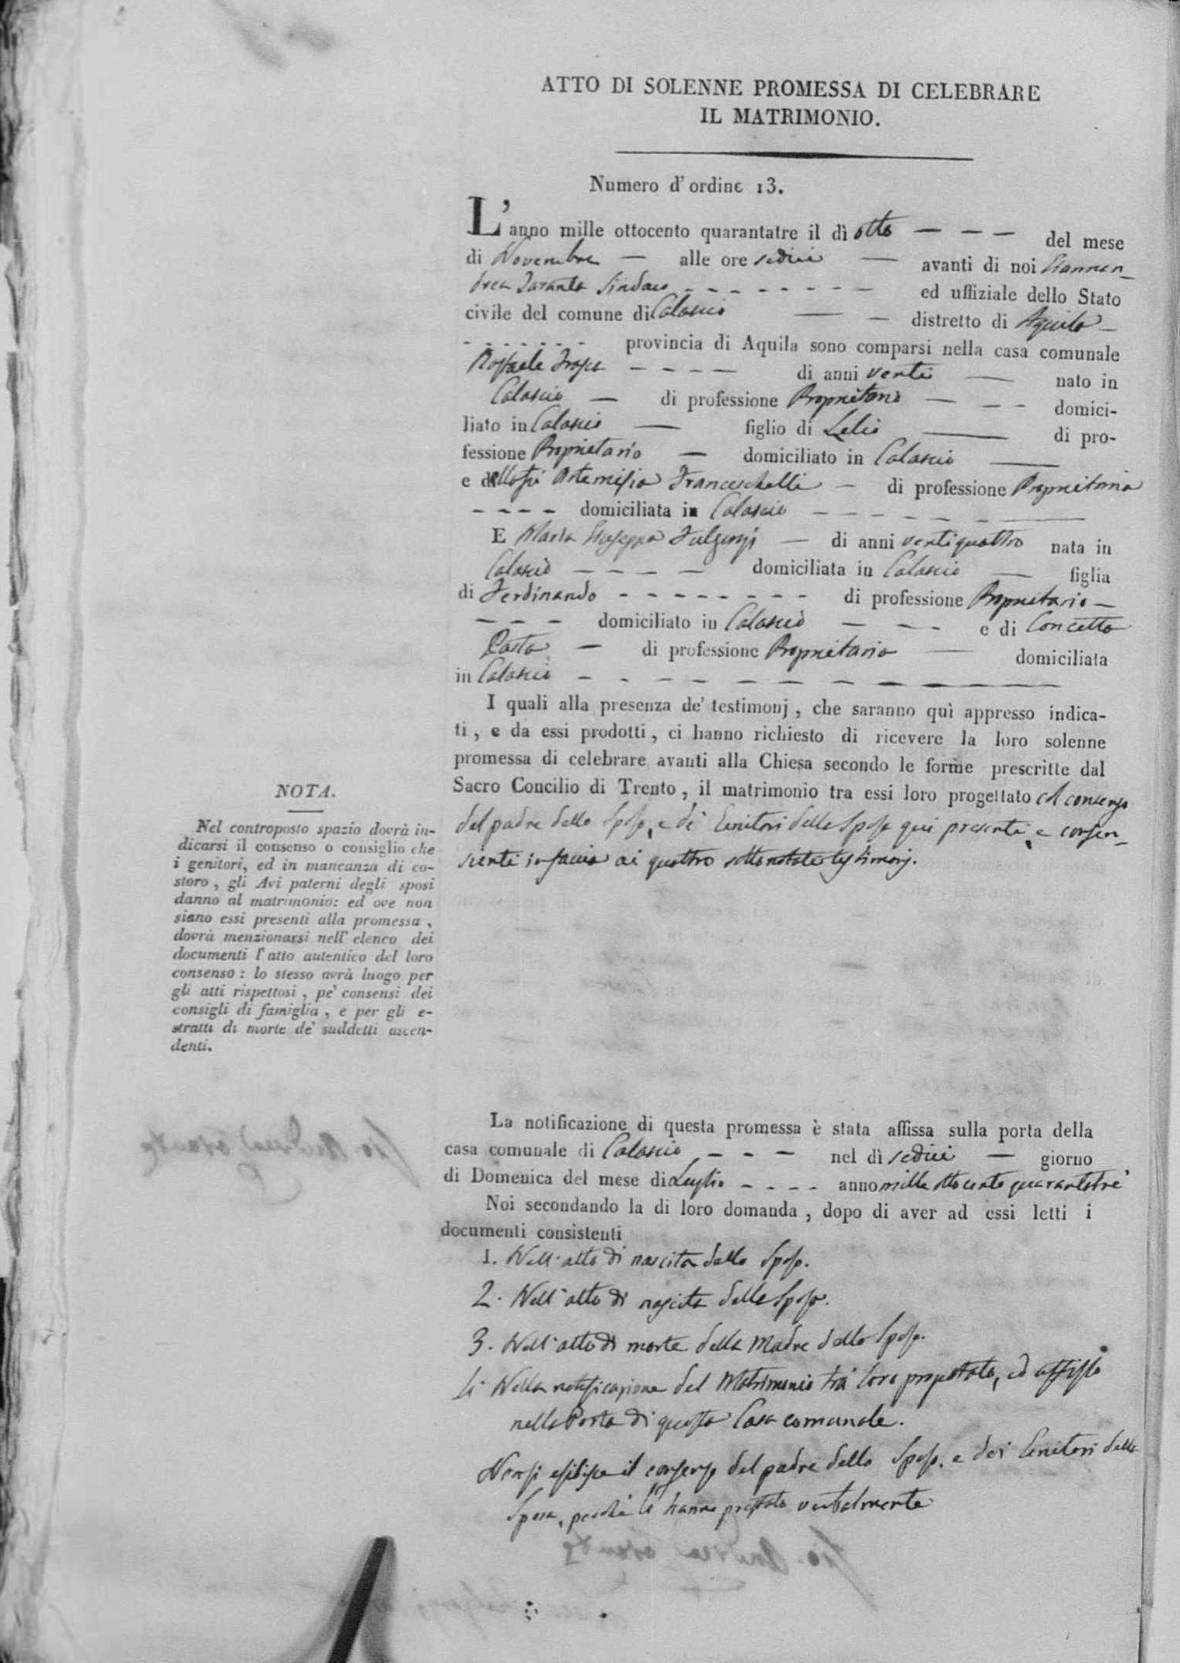 ATTO DI SOLENNE PROMESSA DI CELEBRARE
IL MATRIMONIO.
Numero d'ordine 13.
L'anno mille ottocento quarantatre il dì otto — — — del mese
di Novembre — alle ore sedici — avanti di noi Giannan-
drea Taranta Sindaco - - - - - - - - ed uffiziale dello Stato
civile del comune di Calascio — — distretto di Aquila —
- - - - - - provincia di Aquila sono comparsi nella casa comunale
Raffaele Frasca - - - - di anni venti — nato in
Calascio — di professione Proprietario — - - domici-
liato in Calascio — figlio di Lelio — di pro-
fessione Proprietario — domiciliato in Calascio —
e della fù Artemisia Franceschelli — di professione Proprietaria
- - - - domiciliata in Calascio - - - - - - -
E Maria Giuseppa Fulgenzj — di anni ventiquattro nata in
Calascio - - - - domiciliata in Calascio — figlia
di Ferdinando - - - - - - - - di professione Proprietario —
- - - domiciliato in Calascio — - - e di Concetta
— di professione Proprietaria — domiciliata
in Calascio - - - - - - - - -
I quali alla presenza de' testimonj, che saranno quì appresso indica-
ti, e da essi prodotti, ci hanno richiesto di ricevere la loro solenne
promessa di celebrare avanti alla Chiesa secondo le forme prescritte dal
Sacro Concilio di Trento, il matrimonio tra essi loro progettato col consenso
del padre dello Sposo, e di Genitori della Sposa qui presenti, e consen-
zienti in faccia ai quattro sottonotati testimonj.
NOTA.
Nel controposto spazio dovrà in-
dicarsi il consenso o consiglio che
i genitori, ed in mancanza di co-
storo, gli Avi paterni degli sposi
danno al matrimonio: ed ove non
siano essi presenti alla promessa,
dovrà menzionarsi nell' elenco dei
documenti l'atto autentico del loro
consenso: lo stesso avrà luogo per
gli atti rispettosi, pe' consensi dei
consigli di famiglia, e per gli e-
stratti di morte de' suddetti ascen-
denti.
La notificazione di questa promessa è stata affissa sulla porta della
casa comunale di Calascio - - - nel dì sedici — giorno
di Domenica del mese di Luglio - - - - anno mille ottocento quarantatre
Noi secondando la di loro domanda, dopo di aver ad essi letti i
documenti consistenti
1. Nell'atto di nascita dello Sposo.
2. Nell'atto di nascita della Sposa.
3. Nell'atto di morte della Madre dello Sposo.
4 Nella notificazione del Matrimonio tra loro progettato, ed affissa
nella Porta di questa Casa comunale.
Non si esibisce il consenso del padre dello Sposo, e dei Genitori della
Sposa, perchè lo hanno prestato verbalmente